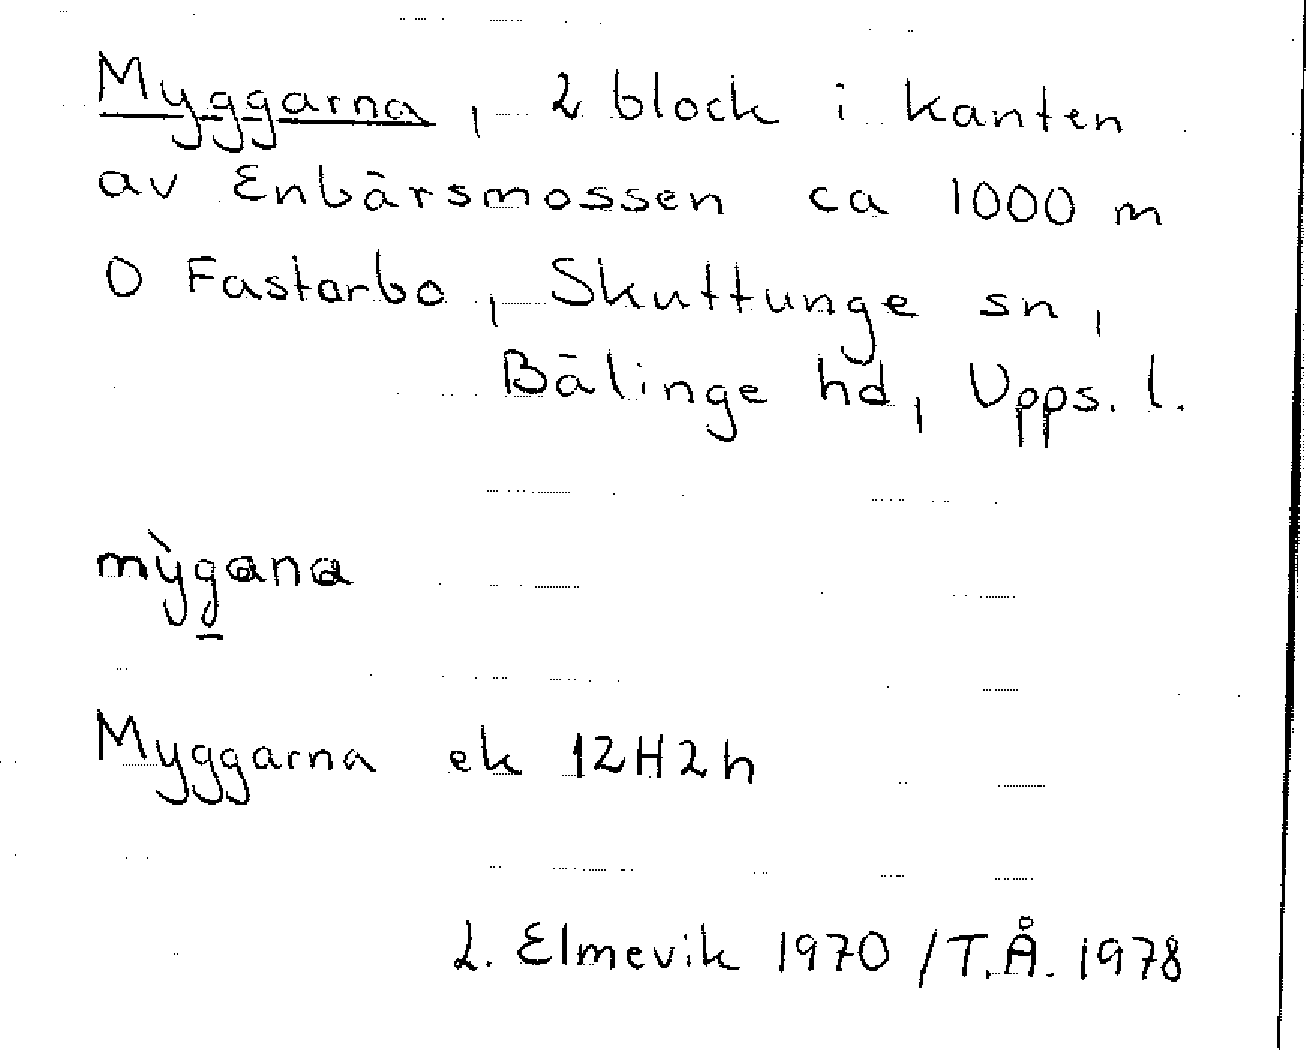 Myggarna, 2 block i kanten
av Enbärsmossen ca 1000 m
O Fastarbo, Skuttunge sn,
Bälinge hd, Upps. l.
mỳg̲ana
Myggarna ek 12H2h
L. Elmevik 1970 /T.Å. 1978